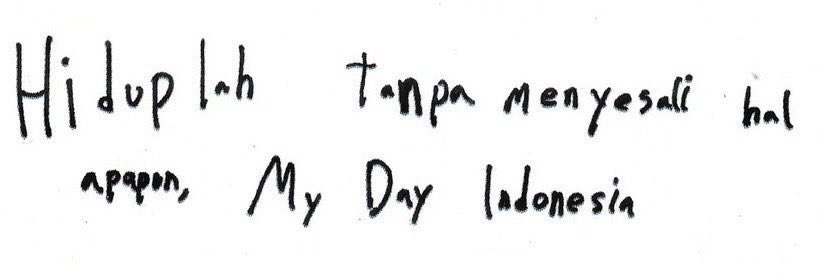 Hiduplah tanpa menyesali hal
apapun, My Day Indonesia